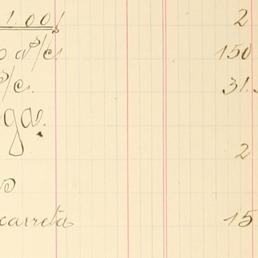 1.00! 2
o a/c 150
/c. 31.
ga.
2
o
carreta 15